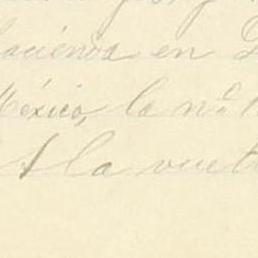 hacienda en
México, la n.º
A la vuelt